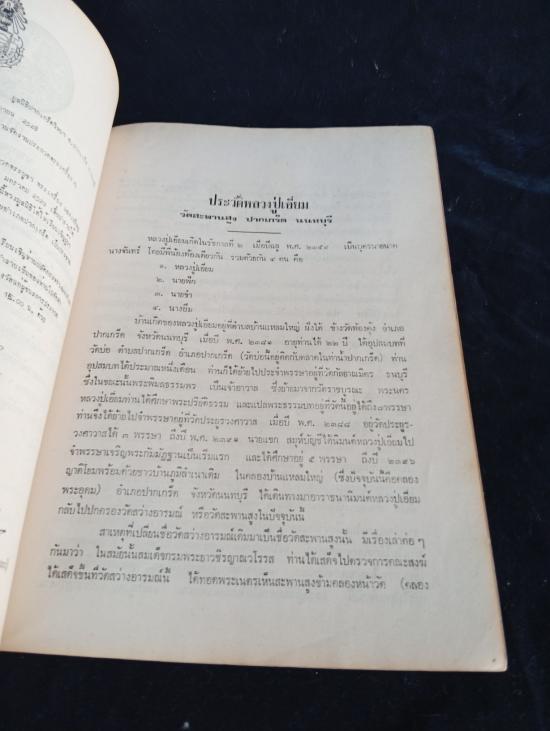 ประวัติหลวงปู่เอี่ยม
วัดสะพานสูง ปากเกร็ด นนทบุรี
หลวงปู่เอี่ยมเกิดในรัชกาลที่ ๒ เมื่อปีฉลู พ.ศ. ๒๓๕๙ เป็นบุตรนายนาค
นางจันทร์ โดยมีพี่น้องท้องเดียวกัน รวมด้วยกัน ๔ คน คือ
๑. หลวงปู่เอี่ยม
๒. นายฟัก
๓. นายขำ
๔. นางอิ่ม
บ้านเกิดของหลวงปู่เอี่ยมอยู่ที่ตำบลบ้านแหลมใหญ่ ฝั่งใต้ ข้างวัดท้องคุ้ง อำเภอ
ปากเกร็ด จังหวัดนนทบุรี เมื่อปี พ.ศ. ๒๓๘๑ อายุท่านได้ ๒๒ ปี ได้อุปสมบทที่
วัดบ่อ ตำบลปากเกร็ด อำเภอปากเกร็ด (วัดบ่อนี้อยู่ติดกับตลาดในท่าน้ำปากเกร็ด) ท่าน
อุปสมบทได้ประมาณหนึ่งเดือน ท่านก็ได้ย้ายไปประจำพรรษาอยู่ที่วัดกัลยาณมิตร ธนบุรี
ซึ่งในขณะนั้นพระพิมลธรรมพร เป็นเจ้าอาวาส ซึ่งย้ายมาจากวัดราชบูรณะ พระนคร
หลวงปู่เอี่ยมท่านได้ศึกษาพระปริยัติธรรม และแปลพระธรรมบทอยู่ที่วัดนี้อยู่ได้ถึง ๗ พรรษา
ท่านจึงได้ย้ายไปจำพรรษาอยู่ที่วัดประยูรวงศาวาส เมื่อปี พ.ศ. ๒๓๘๘ อยู่วัดประยูร-
วงศาวาสได้ ๓ พรรษา ถึงปี พ.ศ. ๒๓๙๑ นายแขก สมุห์บัญชีได้นิมนต์หลวงปู่เอี่ยมไป
จำพรรษาเจริญพระกัมมัฏฐานเป็นเริ่มแรก และได้ศึกษาอยู่ ๕ พรรษา ถึงปี ๒๓๙๖
ญาติโยมพร้อมด้วยชาวบ้านภูมิลำเนาเดิม ในคลองบ้านแหลมใหญ่ (ซึ่งปัจจุบันนี้คือคลอง
พระอุดม) อำเภอปากเกร็ด จังหวัดนนทบุรี ได้เดินทางมาอาราธนานิมนต์หลวงปู่เอี่ยม
กลับไปปกครองวัดสว่างอารมณ์ หรือวัดสะพานสูงในปัจจุบันนี้
สาเหตุที่เปลี่ยนชื่อวัดสว่างอารมณ์เดิมมาเป็นชื่อวัดสะพานสูงนั้น มีเรื่องเล่าต่อ ๆ
กันมาว่า ในสมัยนั้นสมเด็จกรมพระยาวชิรญาณวโรรส ท่านได้เสด็จไปตรวจการคณะสงฆ์
ได้เสด็จขึ้นที่วัดสว่างอารมณ์นี้ ได้ทอดพระเนตรเห็นสะพานสูงข้ามคลองหน้าวัด (คลอง